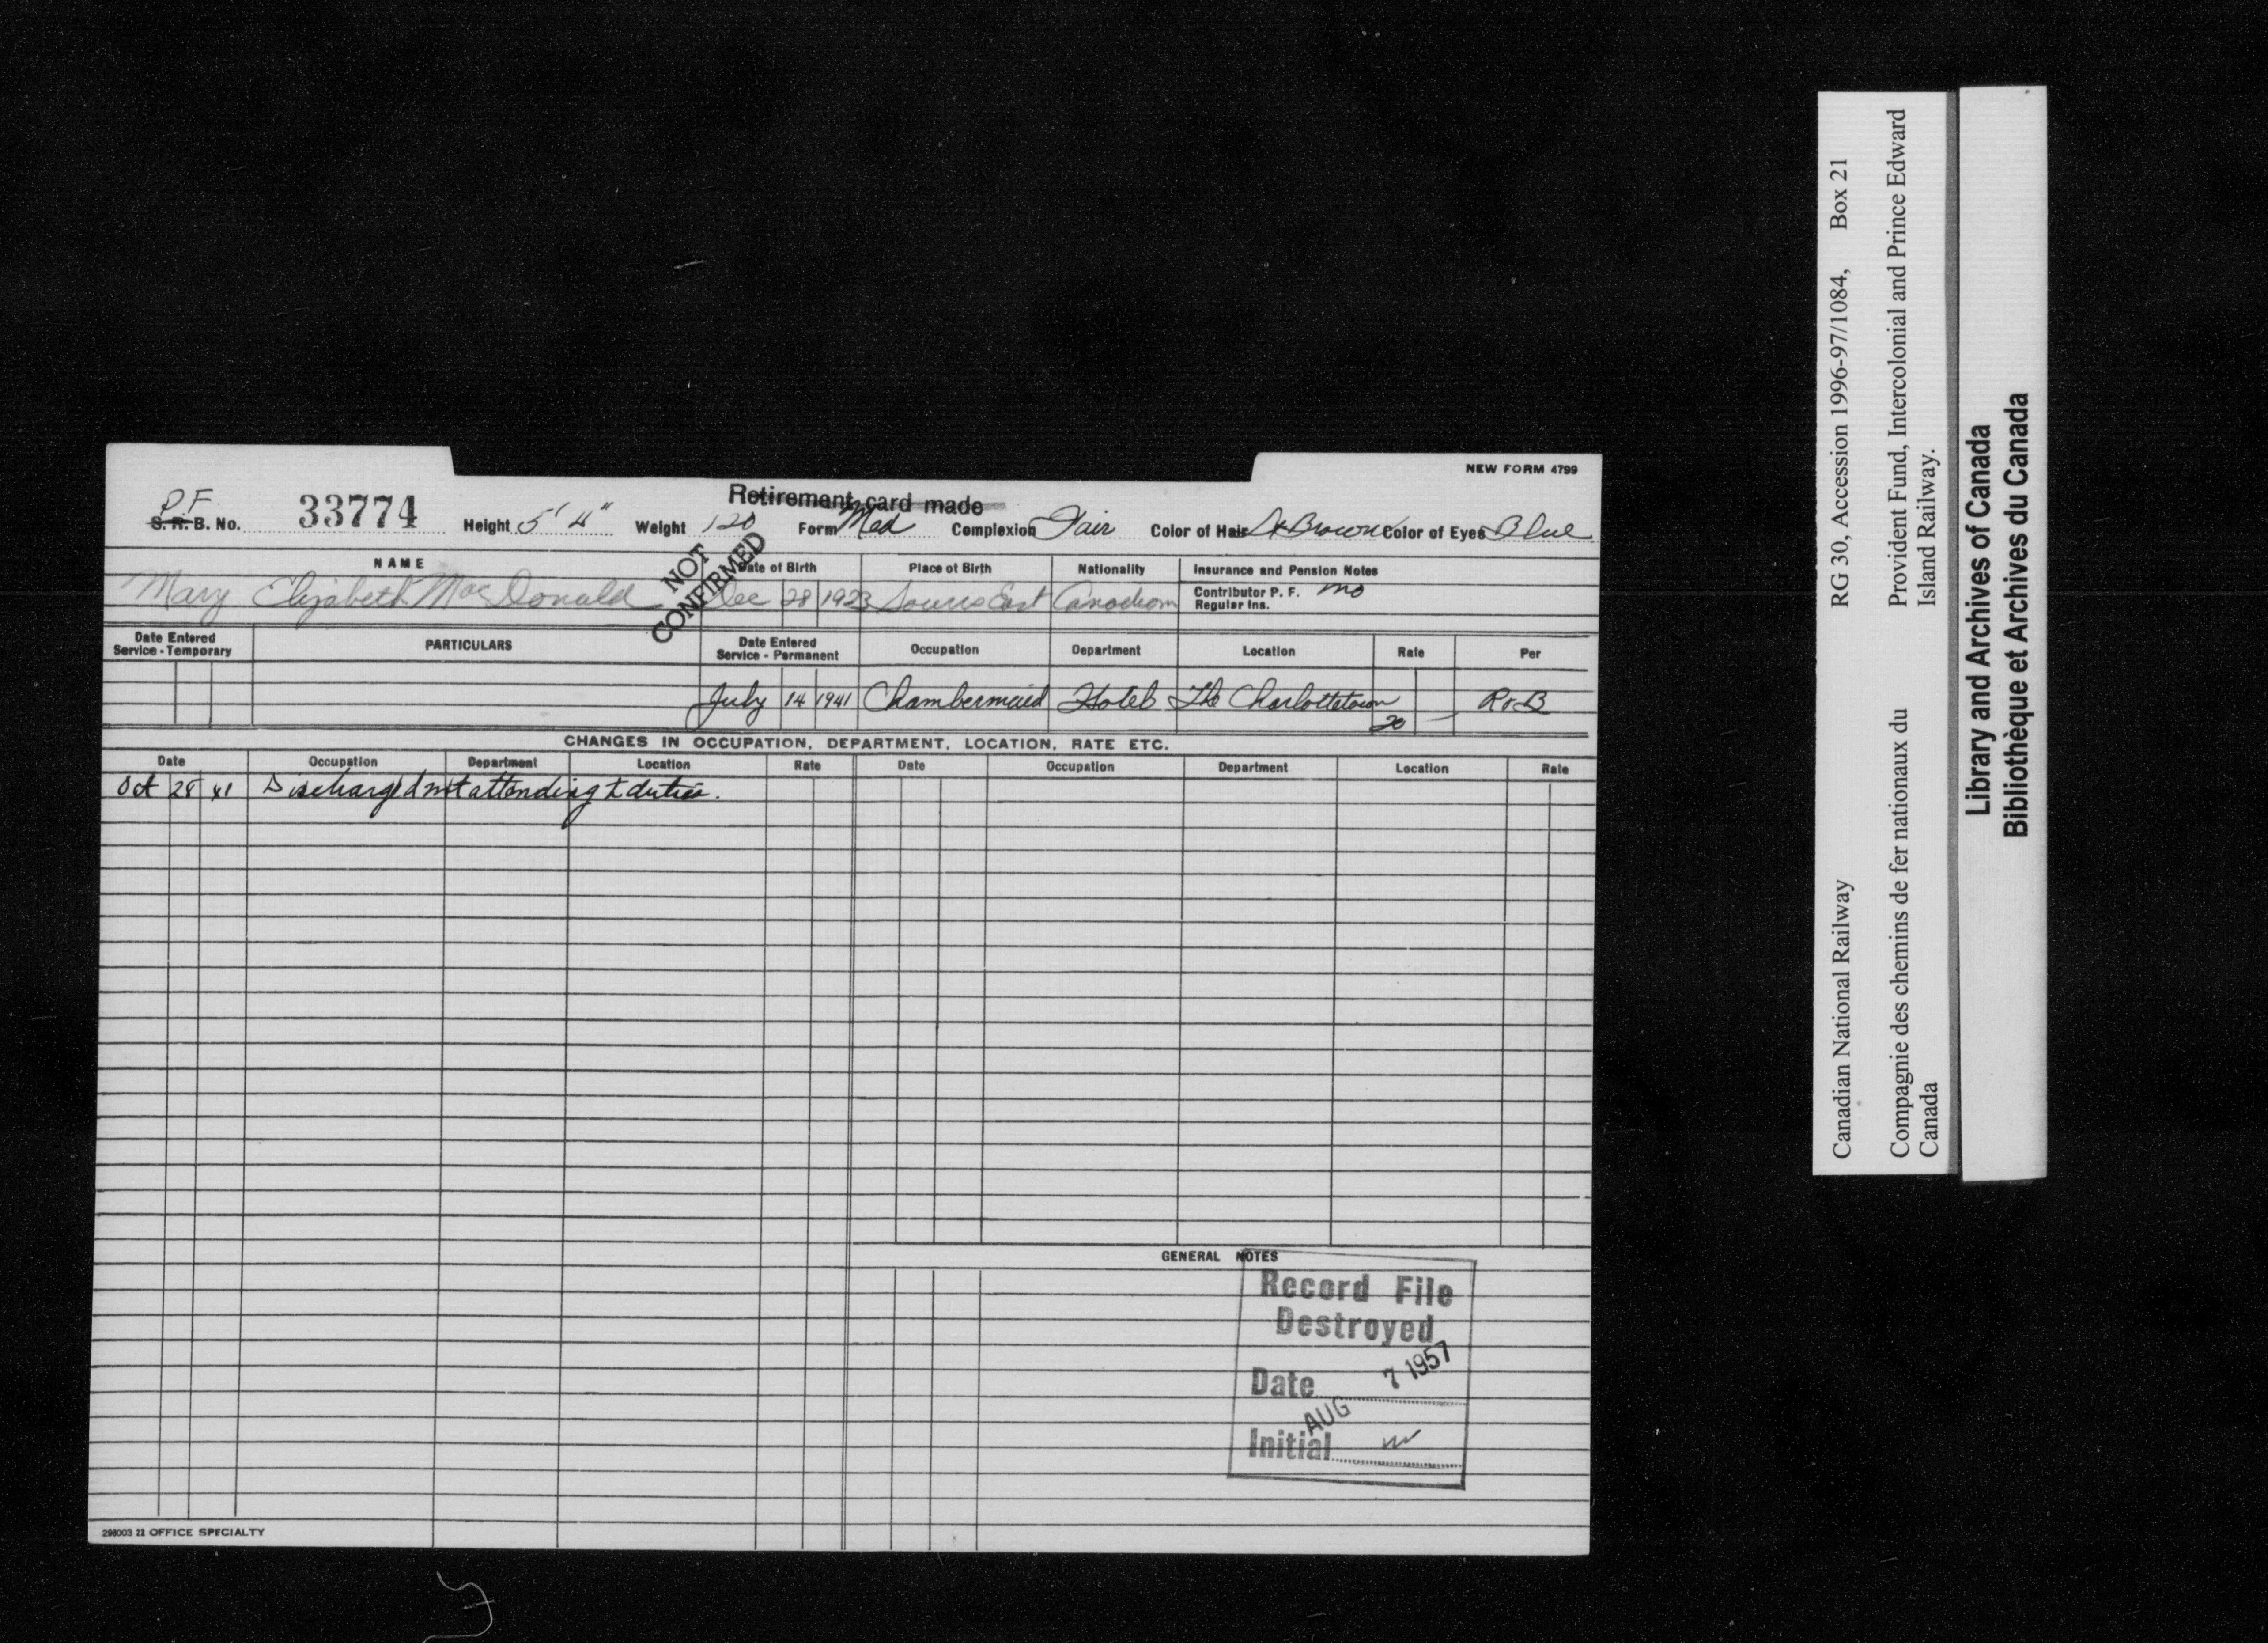 NEW FORM 4799
Retirement card made
P.F.
S.R.B. No. 33774 Height 5' 4" Weight 120 Form Med Complexion Fair Color of Hair Lt Brown Color of Eyes Blue
NOT CONFIRMED
NAME Date of Birth Place of Birth Nationality Insurance and Pension Notes
Mary Elizabeth MacDonald Dec 28 1923 Souris East Canadian Contributor P. F. no
Regular Ins.
Date Entered Service - Temporary PARTICULARS Date Entered Service - Permanent Occupation Department Location Rate Per
July 14 1941 Chambermaid Hotels The Charlottetown 20 — R&B
CHANGES IN OCCUPATION, DEPARTMENT, LOCATION, RATE ETC.
Date Occupation Department Location Rate Date Occupation Department Location Rate
Oct 28 41 Discharged not attending to duties.
GENERAL NOTES
Record File
Destroyed
Date AUG 7 1957
Initial
298003 22 OFFICE SPECIALTY
Canadian National Railway RG 30, Accession 1996-97/1084, Box 21
Compagnie des chemins de fer nationaux du Provident Fund, Intercolonial and Prince Edward
Canada Island Railway.
Library and Archives of Canada
Bibliothèque et Archives du Canada